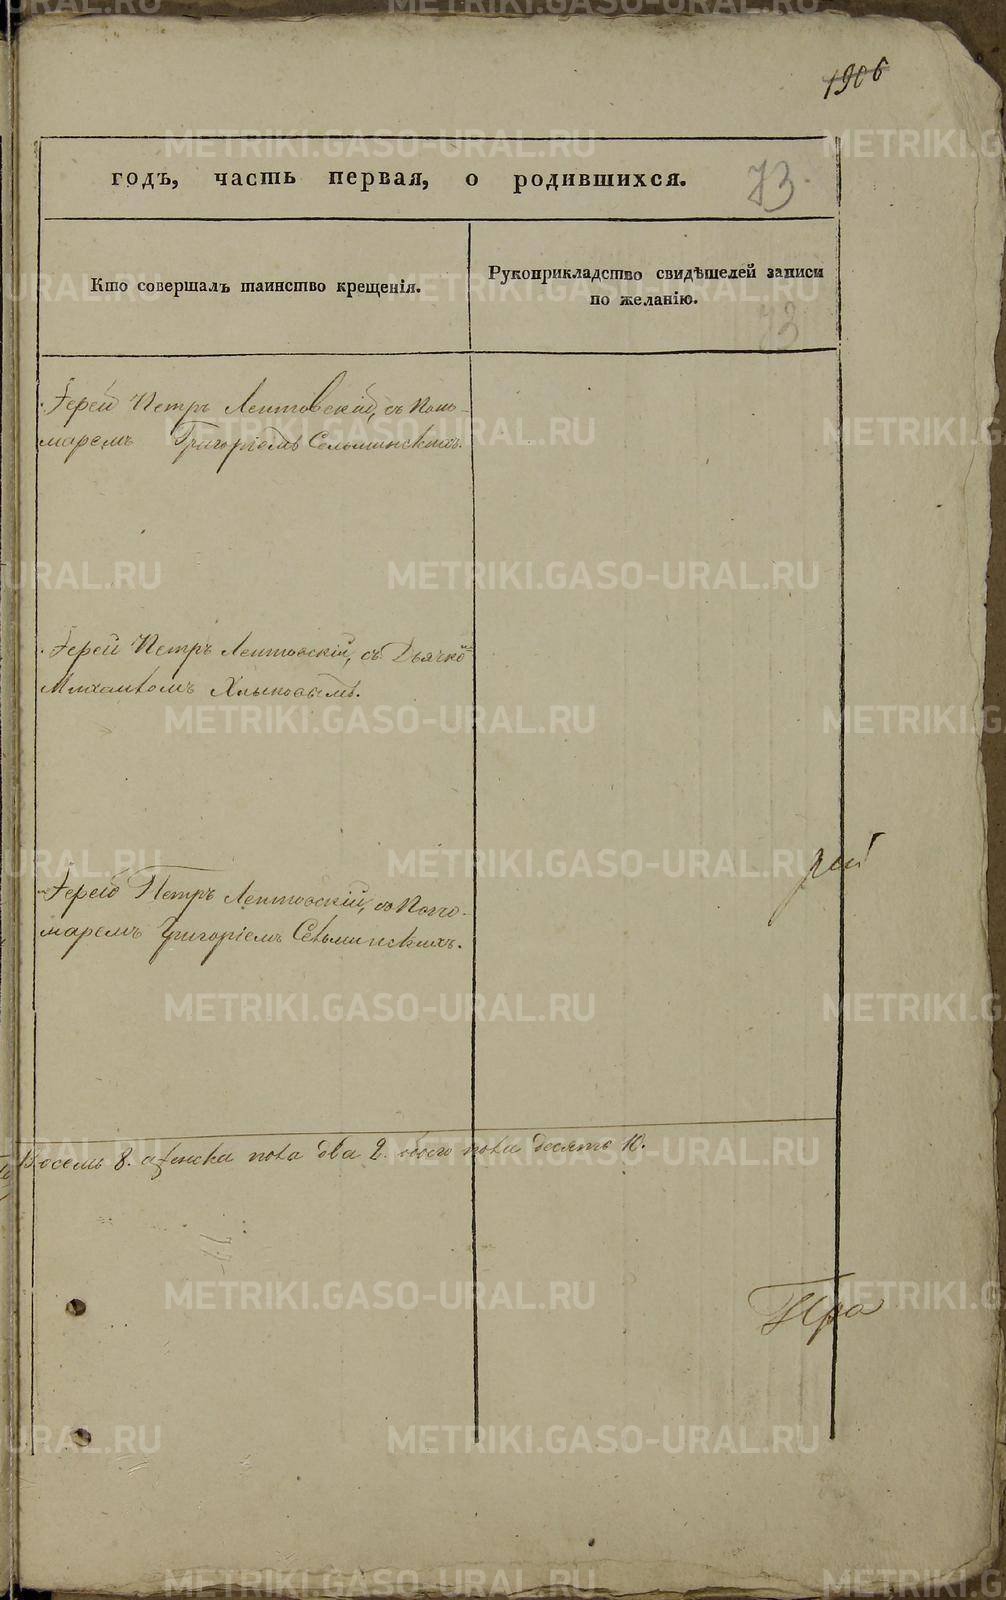 1906
годъ, часть первая, о родившихся. 73.
Кто совершалъ таинство крещенія.
Рукоприкладство свидѣтелей записи
по желанію.
73
Іерей Петръ Лептовскій, съ Поно-
маремъ Григоріемъ Сельминскихъ.
Іерей Петръ Лептовскій, съ Дьячко
Михаиломъ Хлыновымъ.
Іерей Петръ Лептовскій, съ Поно-
маремъ Григоріемъ Сельминскихъ.
рей
Восемь 8. а женска пола два 2. обоего пола десять 10.
Пра
METRIKI.GASO-URAL.RU